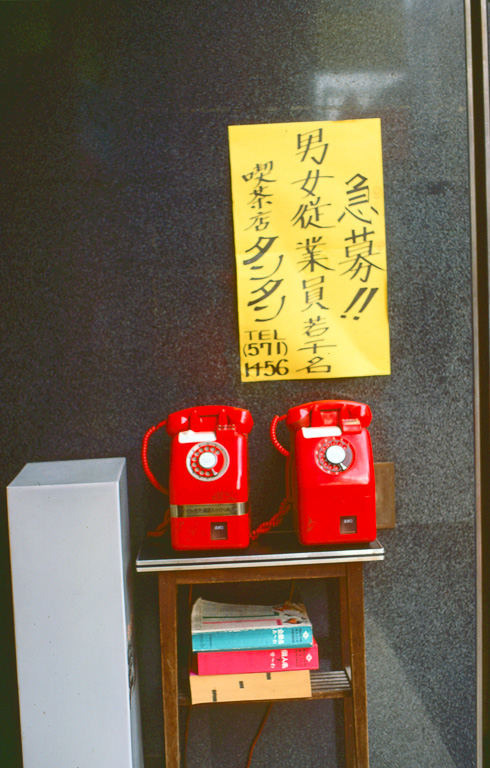 急募!!
男女従業員若干名
喫茶店タンタン
TEL
(571)
1456